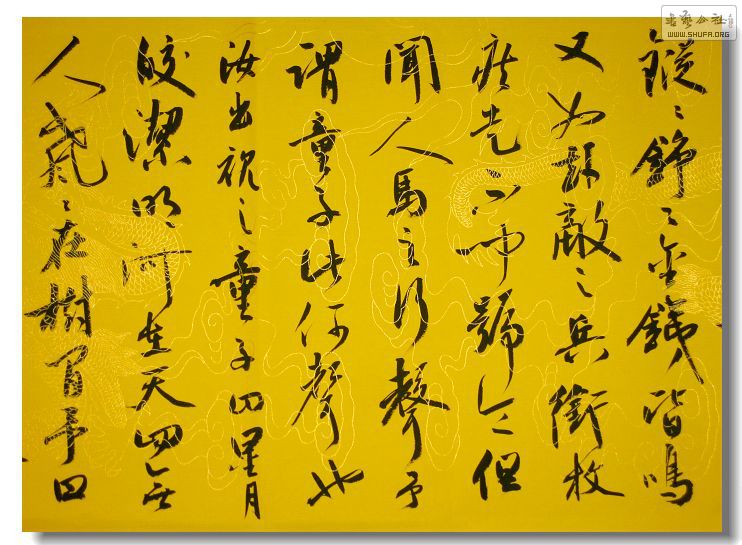 鏦〻錚〻金鐵皆鳴
又如赴敵之兵銜枚
疾走不聞號令但
聞人馬之行聲予
謂童子此何聲也
汝出視之童子曰星月
皎潔明河在天四無
人聲〻在樹間予曰
書藝公社
WWW.SHUFA.ORG